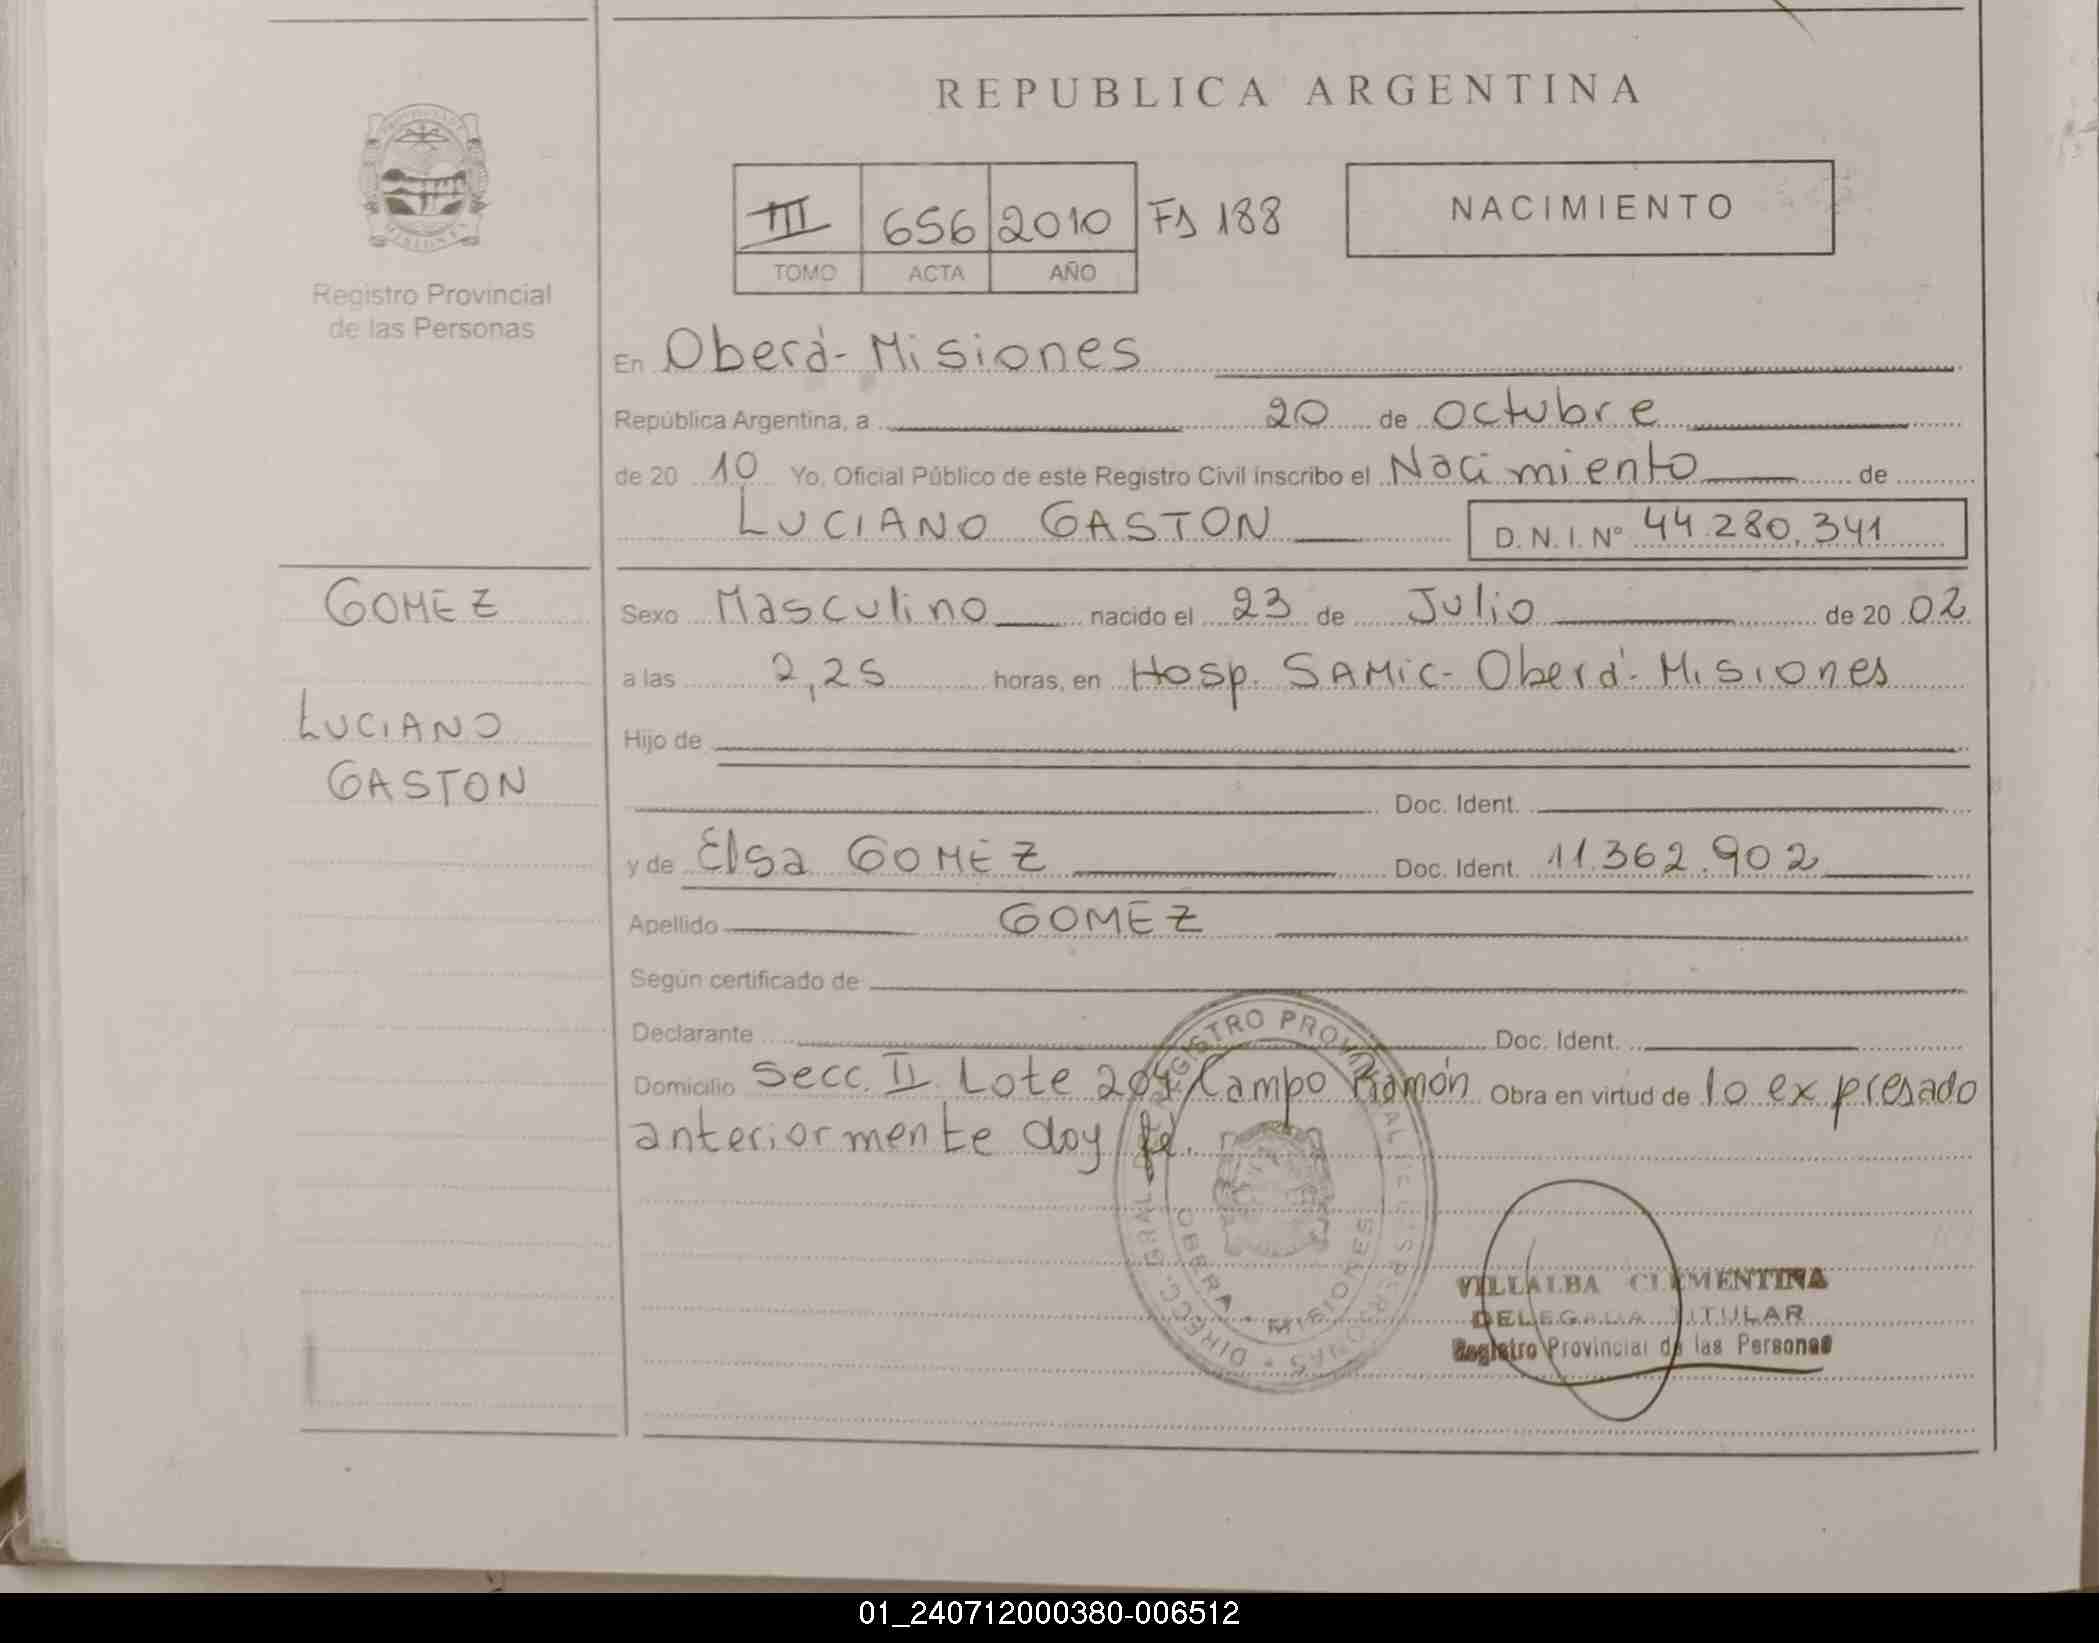 REPUBLICA ARGENTINA
III 656 2010 Fs 188
TOMO ACTA AÑO
NACIMIENTO
Registro Provincial
de las Personas
En Oberá - Misiones
República Argentina, a 20 de octubre
de 20 10 Yo, Oficial Público de este Registro Civil inscribo el Nacimiento de
LUCIANO GASTON D.N.I. Nº 44.280.341
GOMEZ
LUCIANO
GASTON
Sexo Masculino nacido el 23 de Julio de 20 02
a las 2,25 horas, en Hosp. SAMIC - Oberá - Misiones
Hijo de
Doc. Ident.
y de Elsa GOMEZ Doc. Ident. 11.362.902
Apellido GOMEZ
Según certificado de
Declarante Doc. Ident.
Domicilio Secc. II Lote Campo Ramón Obra en virtud de lo expresado
anteriormente doy fé.
DIRECC. GRAL. REGISTRO PROVINCIAL DE LAS PERSONAS
OBERA - MISIONES
VILLALBA CLEMENTINA
DELEGADA TITULAR
Registro Provincial de las Personas
01_240712000380-006512